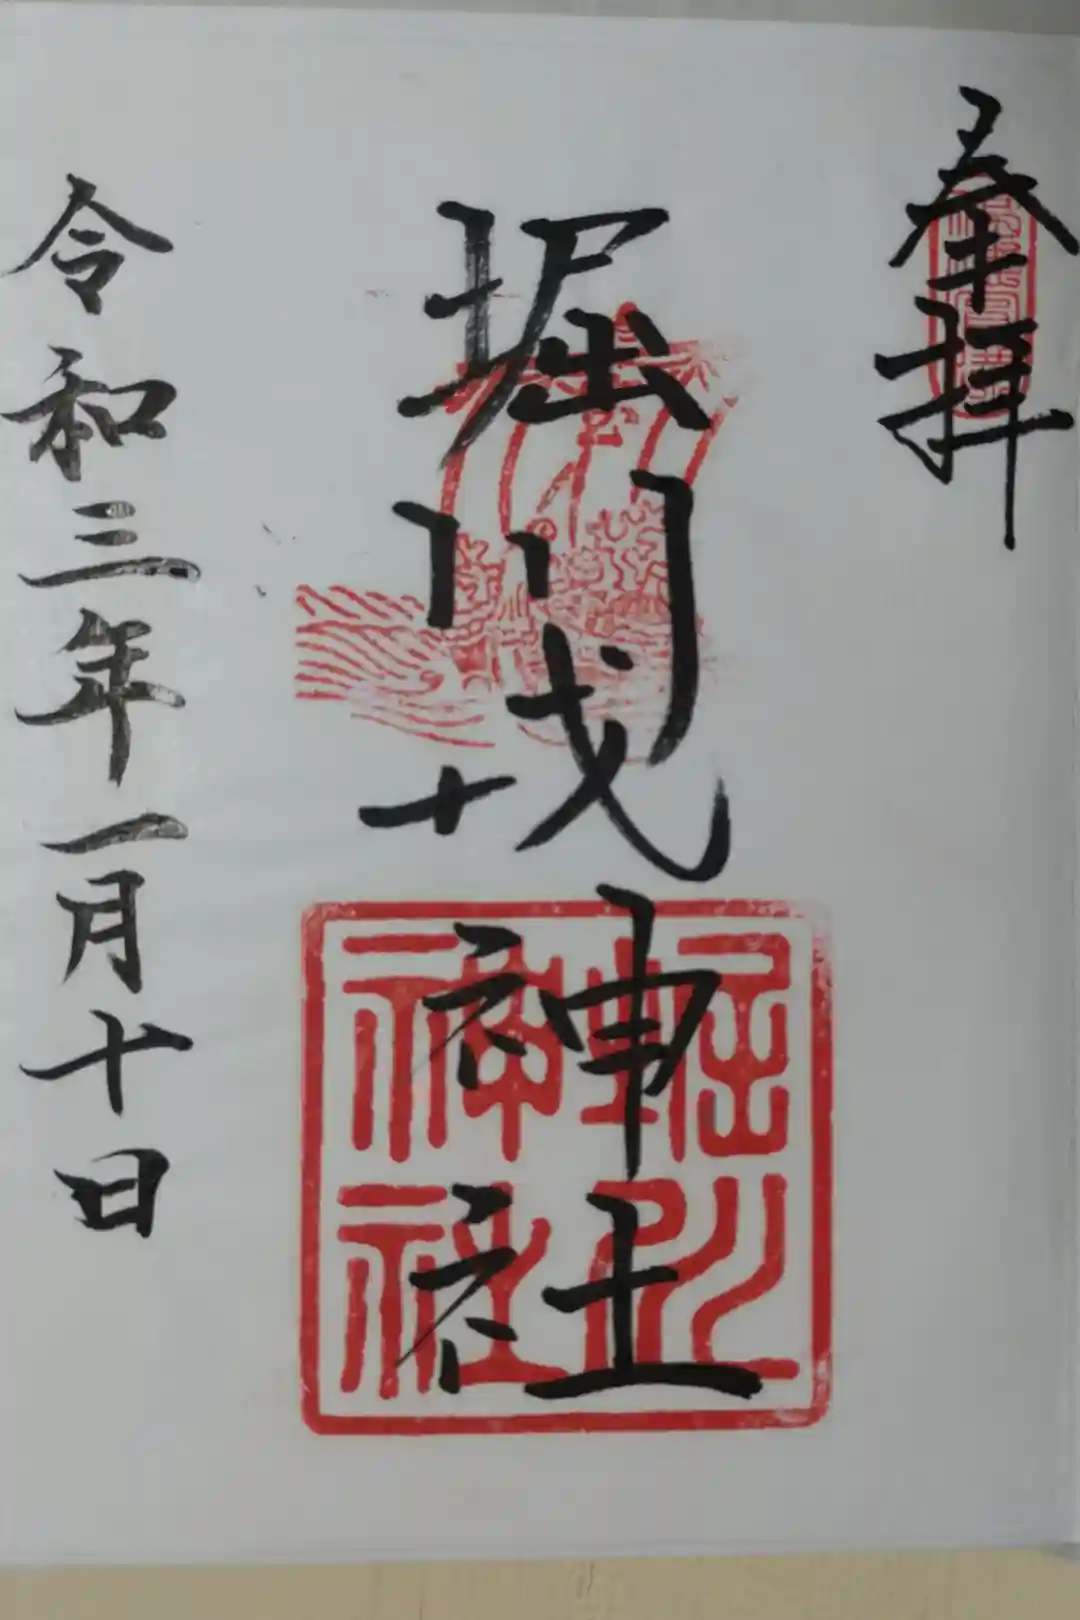 奉拝
堀川戎神社
令和三年一月十日
堀川神社